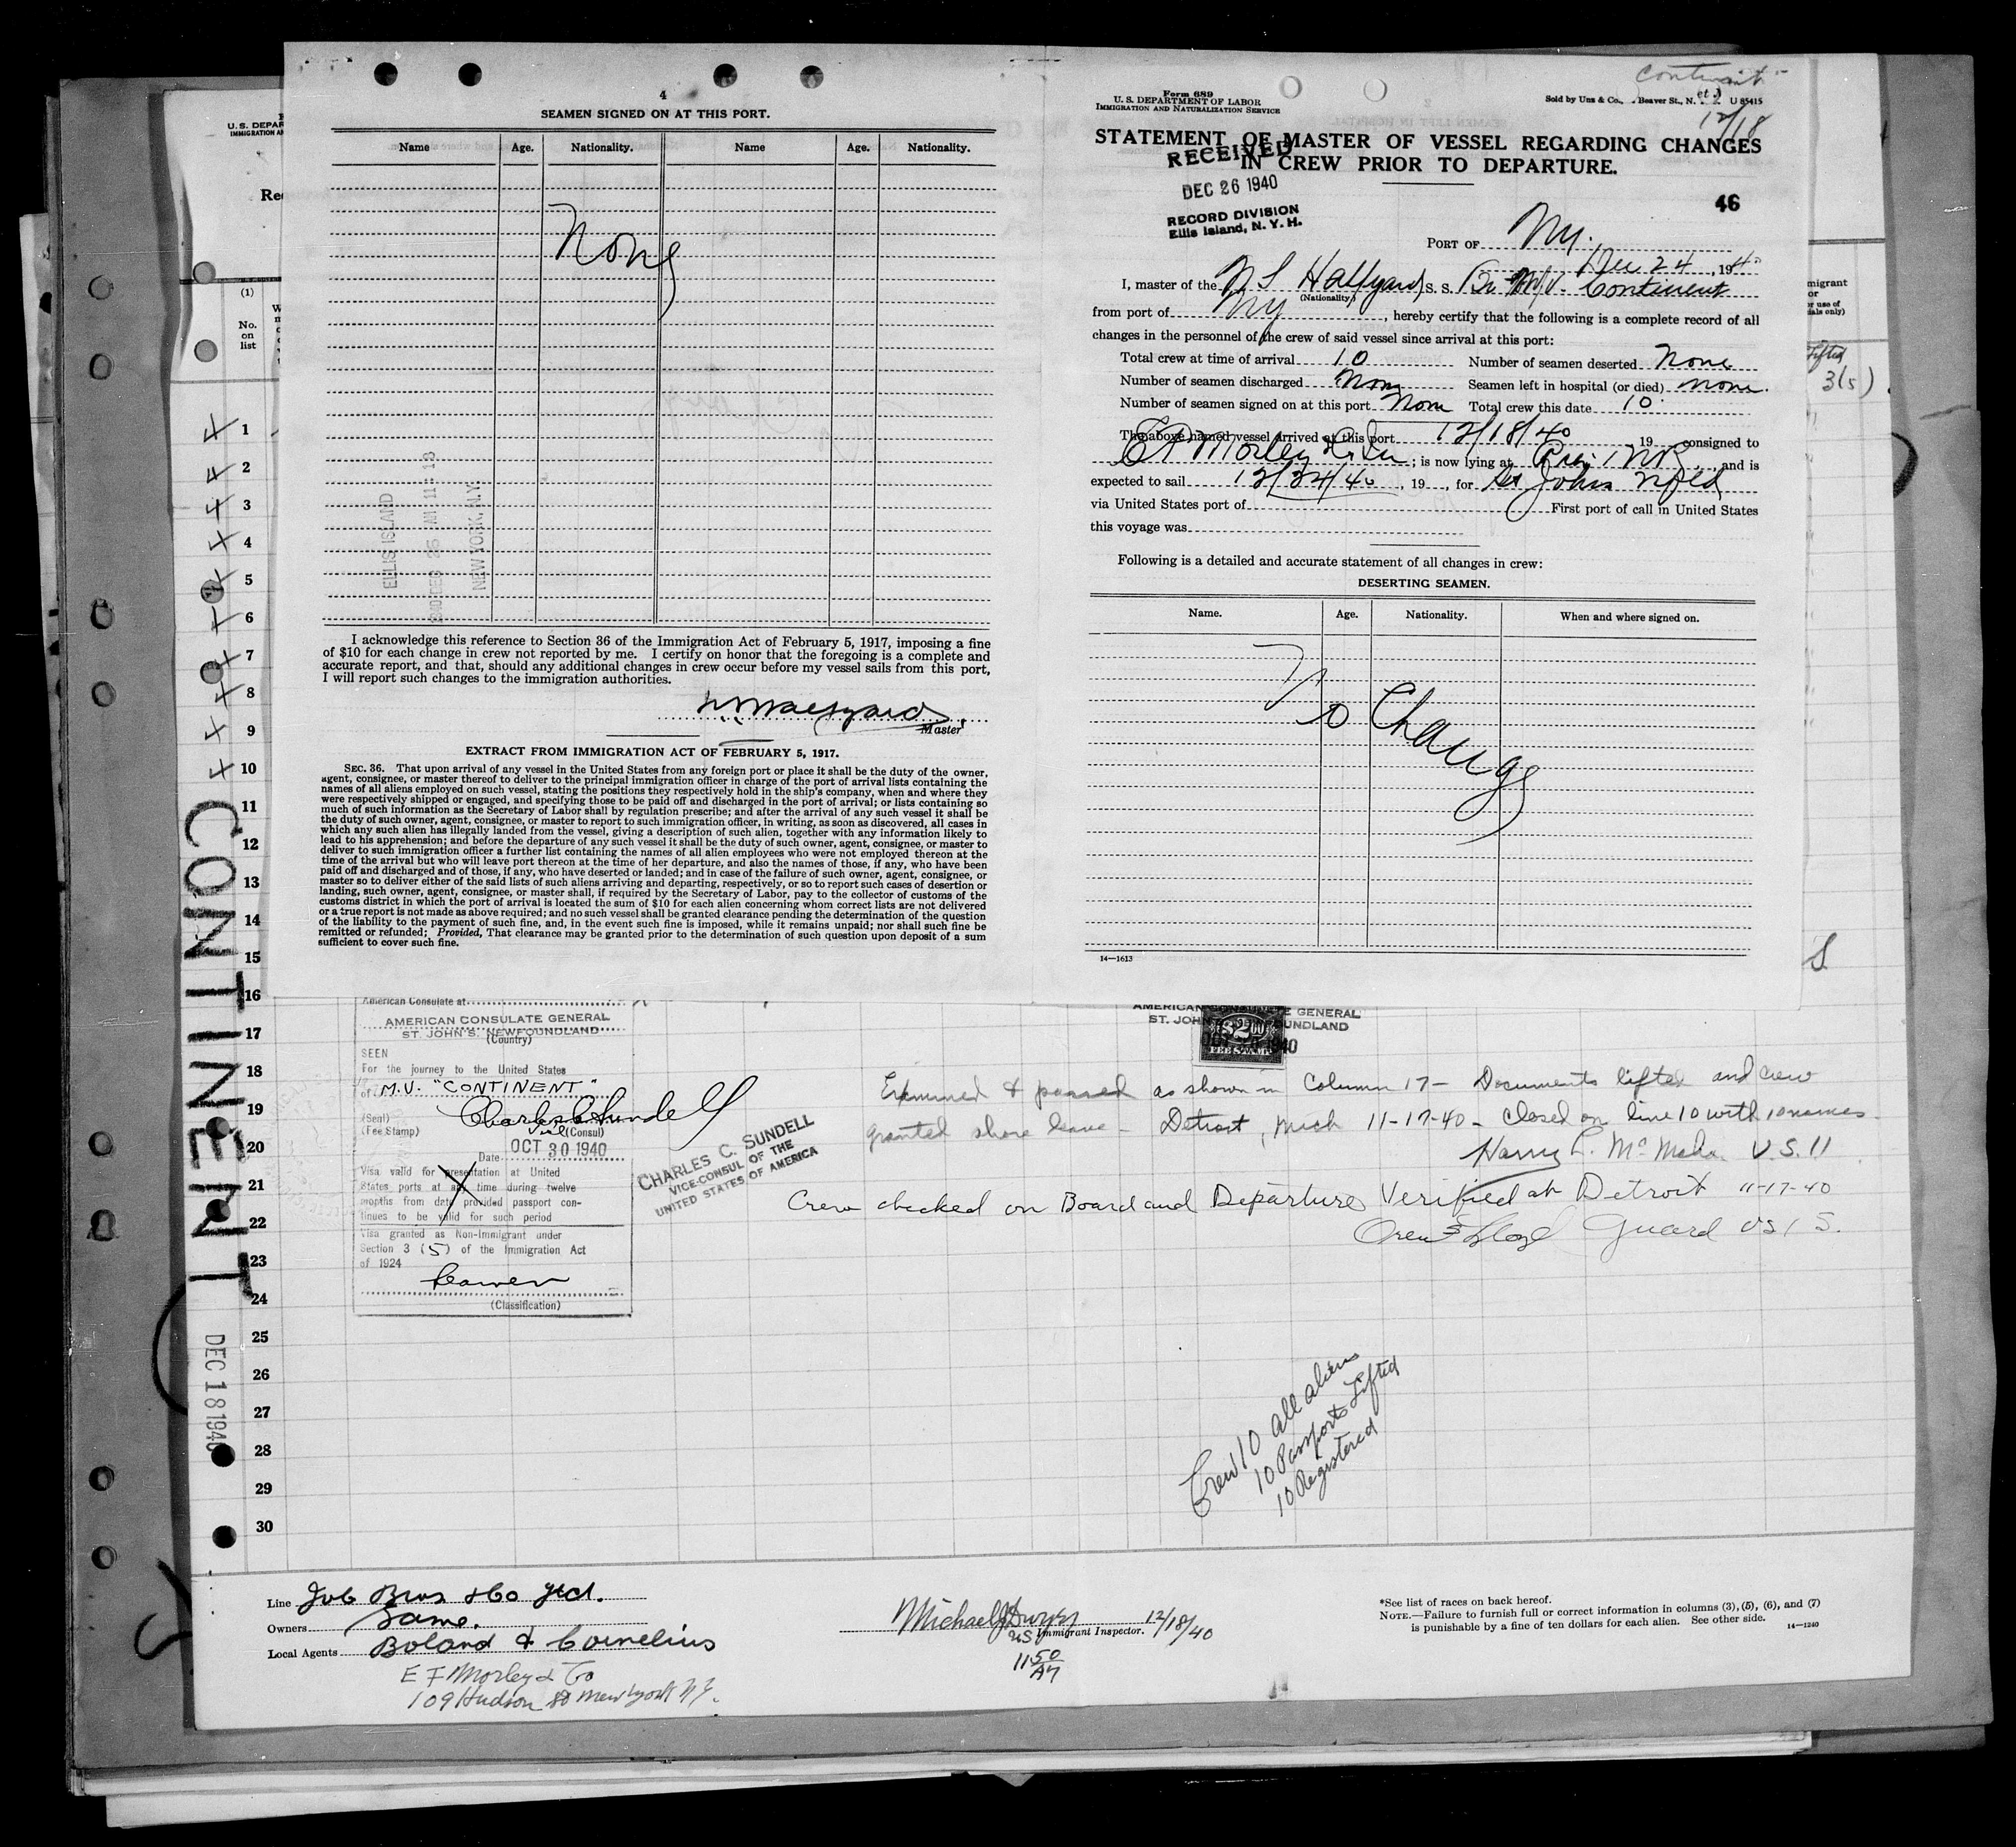 4
SEAMEN SIGNED ON AT THIS PORT.
Name Age. Nationality. Name Age. Nationality.
None
ELLIS ISLAND
1940 DEC 26 AM 11:13
NEW YORK, N.Y.
I acknowledge this reference to Section 36 of the Immigration Act of February 5, 1917, imposing a fine
of $10 for each change in crew not reported by me. I certify on honor that the foregoing is a complete and
accurate report, and that, should any additional changes in crew occur before my vessel sails from this port,
I will report such changes to the immigration authorities.
Master
EXTRACT FROM IMMIGRATION ACT OF FEBRUARY 5, 1917.
SEC. 36. That upon arrival of any vessel in the United States from any foreign port or place it shall be the duty of the owner,
agent, consignee, or master thereof to deliver to the principal immigration officer in charge of the port of arrival lists containing the
names of all aliens employed on such vessel, stating the positions they respectively hold in the ship's company, when and where they
were respectively shipped or engaged, and specifying those to be paid off and discharged in the port of arrival; or lists containing so
much of such information as the Secretary of Labor shall by regulation prescribe; and after the arrival of any such vessel it shall be
the duty of such owner, agent, consignee, or master to report to such immigration officer, in writing, as soon as discovered, all cases in
which any such alien has illegally landed from the vessel, giving a description of such alien, together with any information likely to
lead to his apprehension; and before the departure of any such vessel it shall be the duty of such owner, agent, consignee, or master to
deliver to such immigration officer a further list containing the names of all alien employees who were not employed thereon at the
time of the arrival but who will leave port thereon at the time of her departure, and also the names of those, if any, who have been
paid off and discharged and of those, if any, who have deserted or landed; and in case of the failure of such owner, agent, consignee, or
master so to deliver either of the said lists of such aliens arriving and departing, respectively, or so to report such cases of desertion or
landing, such owner, agent, consignee, or master shall, if required by the Secretary of Labor, pay to the collector of customs of the
customs district in which the port of arrival is located the sum of $10 for each alien concerning whom correct lists are not delivered
or a true report is not made as above required; and no such vessel shall be granted clearance pending the determination of the question
of the liability to the payment of such fine, and, in the event such fine is imposed, while it remains unpaid; nor shall such fine be
remitted or refunded; Provided, That clearance may be granted prior to the determination of such question upon deposit of a sum
sufficient to cover such fine.
Form 689
U. S. DEPARTMENT OF LABOR
IMMIGRATION AND NATURALIZATION SERVICE
Continent
12/18
Sold by Unz & Co., Beaver St., N. U 85415
STATEMENT OF MASTER OF VESSEL REGARDING CHANGES
IN CREW PRIOR TO DEPARTURE.
RECEIVED
DEC 26 1940
RECORD DIVISION
Ellis Island, N. Y. H.
46
PORT OF NY.
Dec 24, 1940
I, master of the N S Halfyard S. S. Br M/V. Continent
(Nationality)
from port of NY, hereby certify that the following is a complete record of all
changes in the personnel of the crew of said vessel since arrival at this port:
Total crew at time of arrival 10 Number of seamen deserted None
Number of seamen discharged None Seamen left in hospital (or died) none.
Number of seamen signed on at this port None Total crew this date 10
The above named vessel arrived at this port 12/18/40, 19 consigned to
EF Morley & Co; is now lying at Pier 1 NR and is
expected to sail 12/24/40, 19, for St Johns Nfld
via United States port of First port of call in United States
this voyage was
Following is a detailed and accurate statement of all changes in crew:
DESERTING SEAMEN.
Name. Age. Nationality. When and where signed on.
No Change
14—1613
U. S. DEPAR
IMMIGRATION AN
(1)
No.
on
list
migrant
or
Lifted
3(5)
1
2
3
4
5
6
7
8
9
10
11
12
13
14
15
16
17
18
19
20
21
22
23
24
25
26
27
28
29
30
CONTINENT
DEC 18 1940
American Consulate at
AMERICAN CONSULATE GENERAL
ST. JOHN'S, NEWFOUNDLAND
(Country)
SEEN
For the journey to the United States
of M.V. "CONTINENT"
(Seal) Charles C Sundell
(Fee Stamp) Vice (Consul)
Date OCT 30 1940
Visa valid for presentation at United
States ports at any time during twelve
months from date provided passport con-
tinues to be valid for such period
Visa granted as Non-Immigrant under
Section 3 (5) of the Immigration Act
of 1924
Seamen
(Classification)
CHARLES C. SUNDELL
VICE-CONSUL OF THE
UNITED STATES OF AMERICA
AMERICAN CONSULATE GENERAL
ST. JOHN'S, NEWFOUNDLAND
$2.00
OCT 30 1940
FEE STAMP
Examined & passed as shown in Column 17— Documents lifted and crew
granted shore leave — Detroit, Mich 11-17-40 — Closed on line 10 with 10 names
Harry L. McMaho U.S.II
Crew checked on Board and Departure Verified at Detroit 11-17-40
Guard USIS.
Crew 10 all aliens
10 Passports Lifted
10 Registered
Line Job Bros & Co Ltd.
Owners Same.
Local Agents Boland & Cornelius
E F Morley & Co
109 Hudson St New York N.Y.
Michael J Dwyer 12/18/40
US Immigrant Inspector.
11 50 AM
*See list of races on back hereof.
NOTE.—Failure to furnish full or correct information in columns (3), (5), (6), and (7)
is punishable by a fine of ten dollars for each alien. See other side.
14—1240